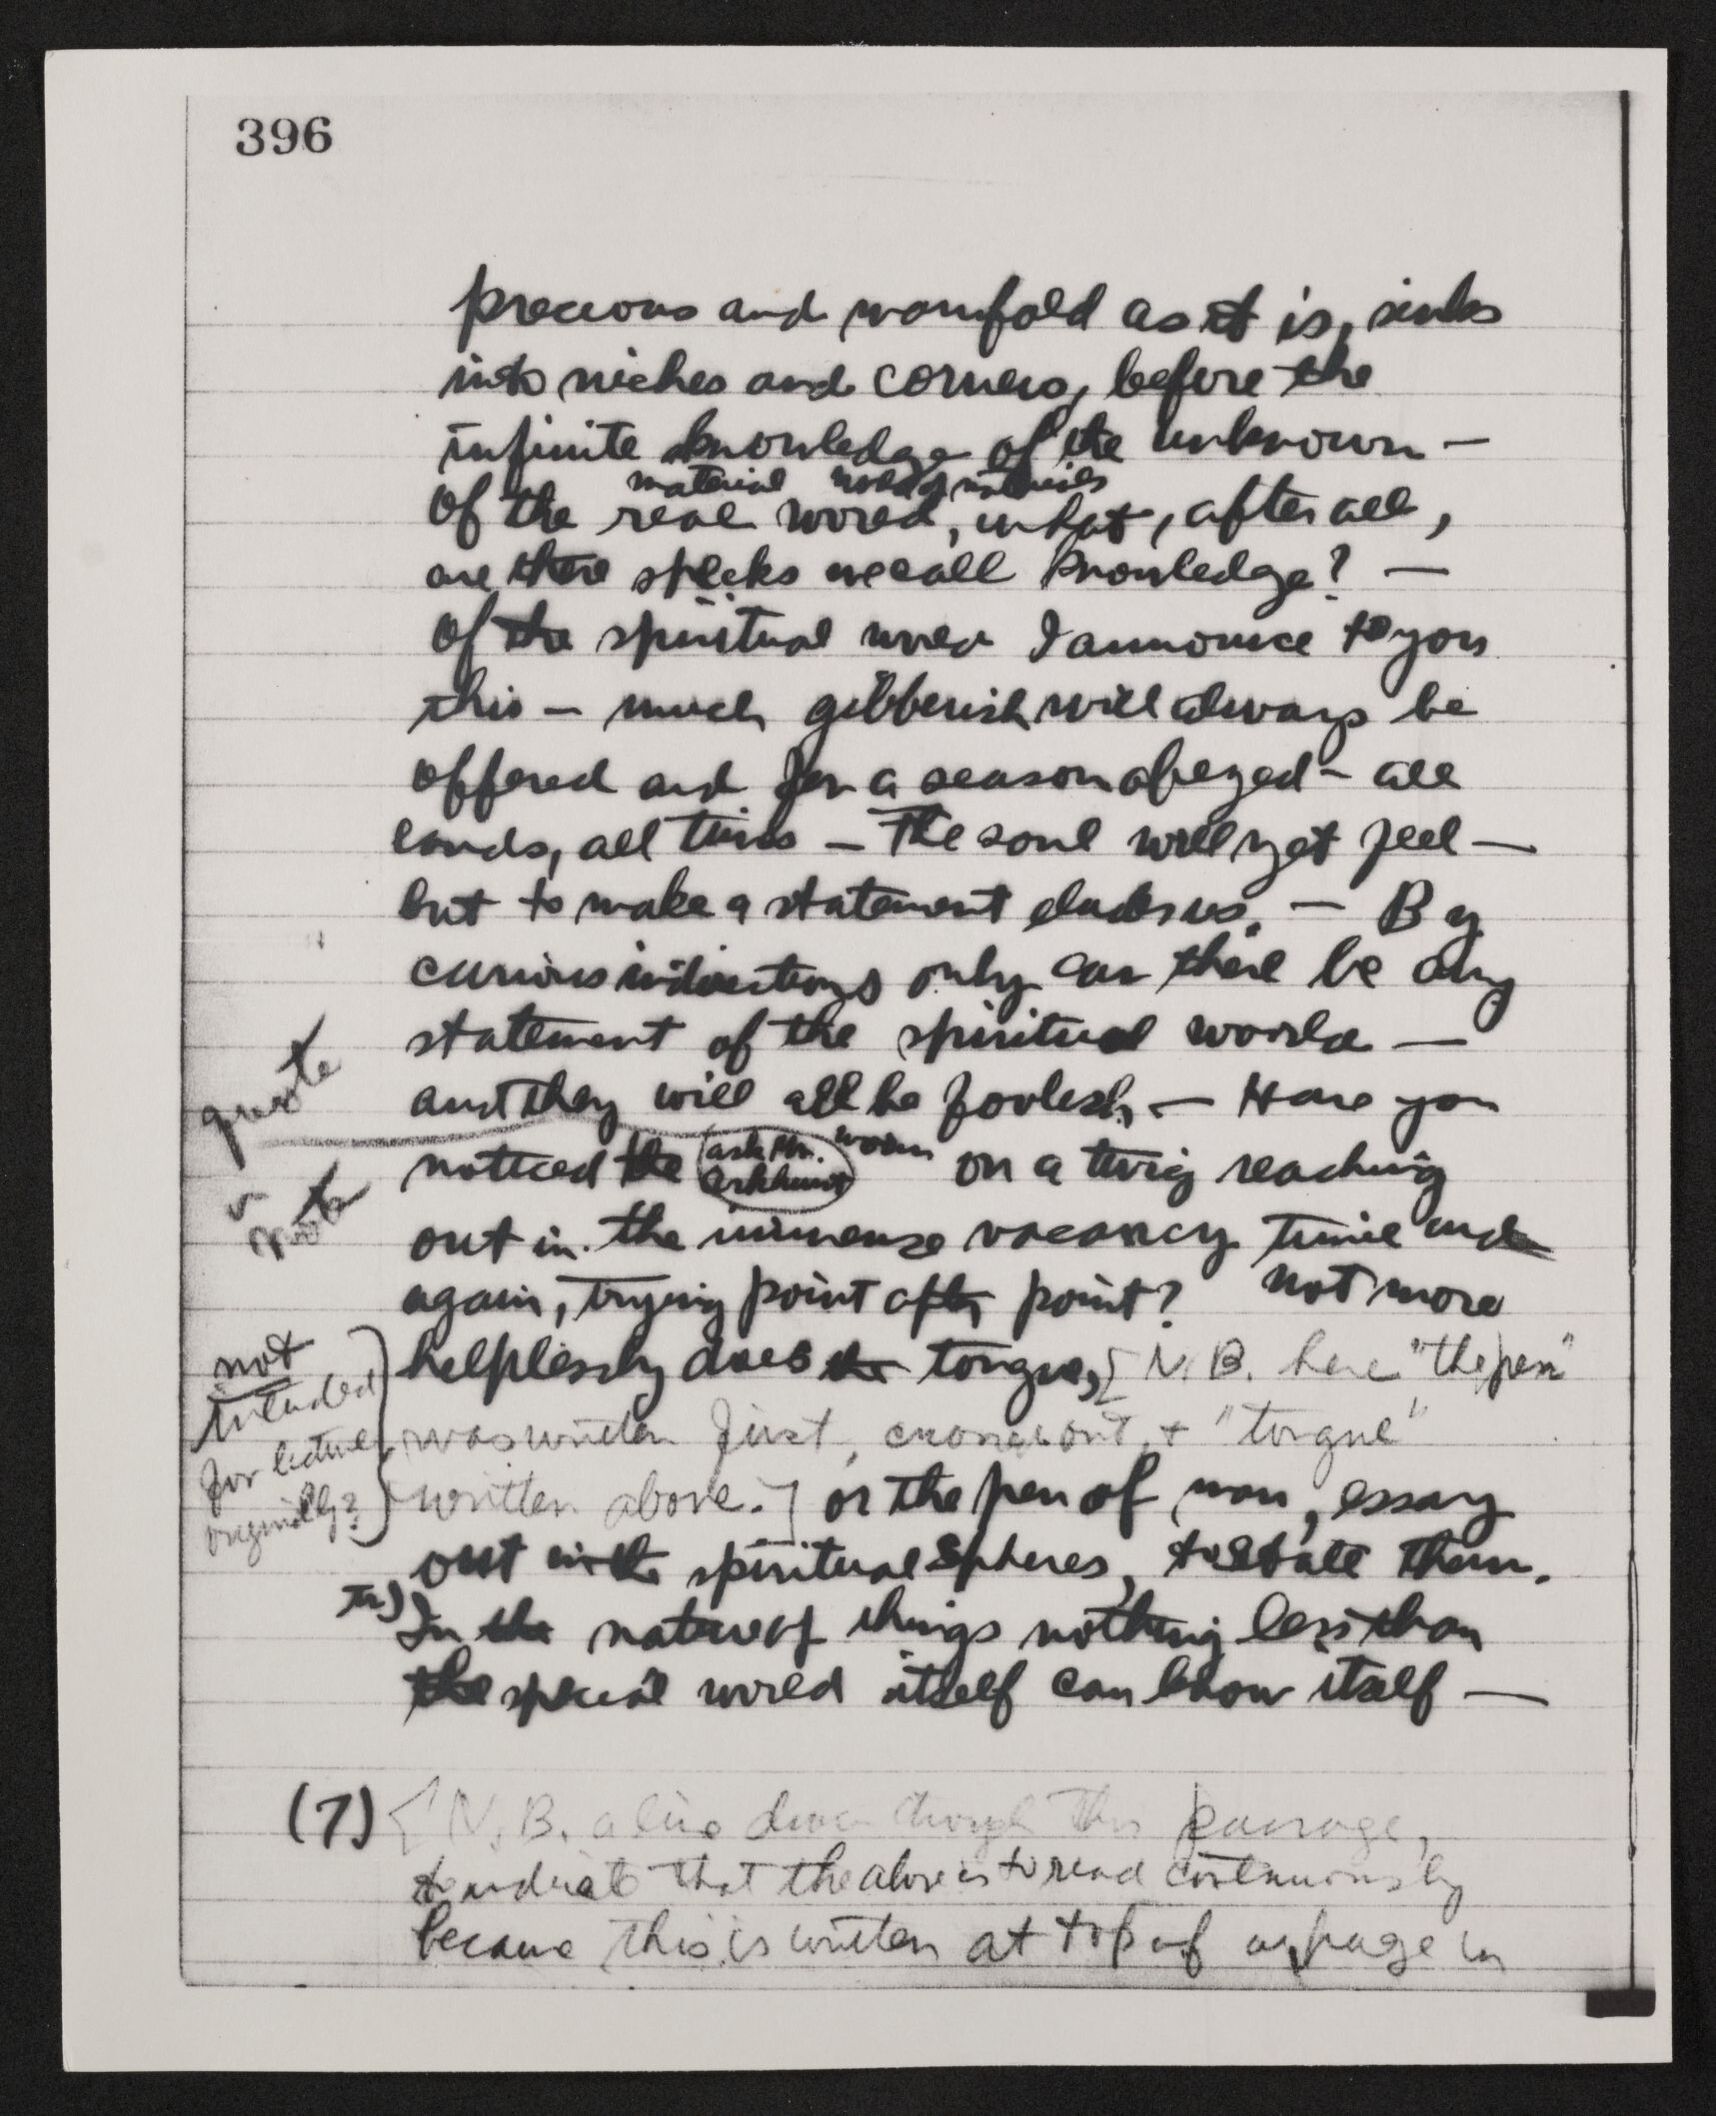 396
precious and manifold as it is, sinks
into niches and corners, before the
infinite knowledge of the unknown —
material world of materials
Of the real world, what, after all,
are these specks we call knowledge? —
Of the spiritual world I announce to you
this — much gibberish will always be
offered and for a season obeyed — all
lands, all times — The soul will yet feel —
but to make a statement eludes us. — By
curious indirections only can there be any
statement of the spiritual world —
and they will all be foolish — Have you
quote
or
note
noticed the (ask Mr. Arkhurst) worm on a twig reaching
out in the immense vacancy time and
again, trying point after point? Not more
helplessly does the tongue, [N.B. here "the pen"
not
intended
for lecture
originally?
was written first, crossed out, + "tongue"
written above.] or the pen of man, essay
out in the spiritual spheres, to state them.
In the nature of things nothing less than
the special world itself can know itself —
(7) [N.B. a line drawn through this passage,
to indicate that the above is to read continuously
because this is written at top of a page in